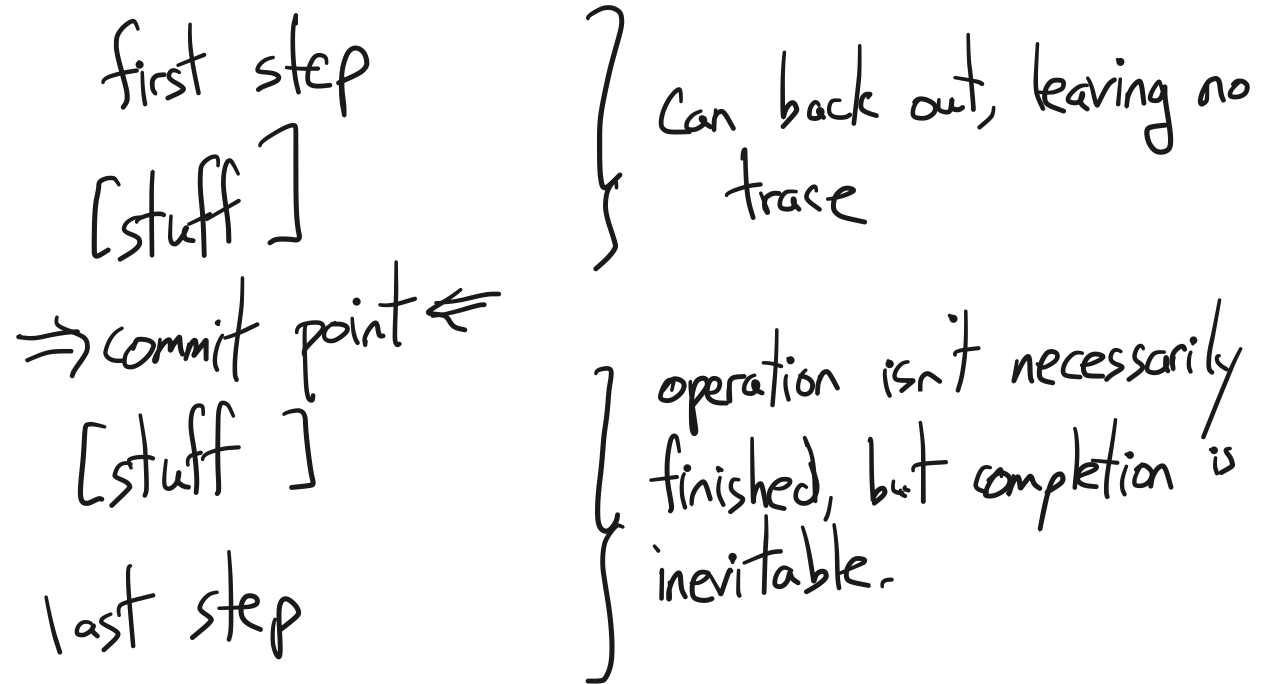 first step
[stuff]
⇒ commit point ⇐
[stuff]
last step
can back out, leaving no
trace
operation isn't necessarily
finished, but completion is
inevitable.